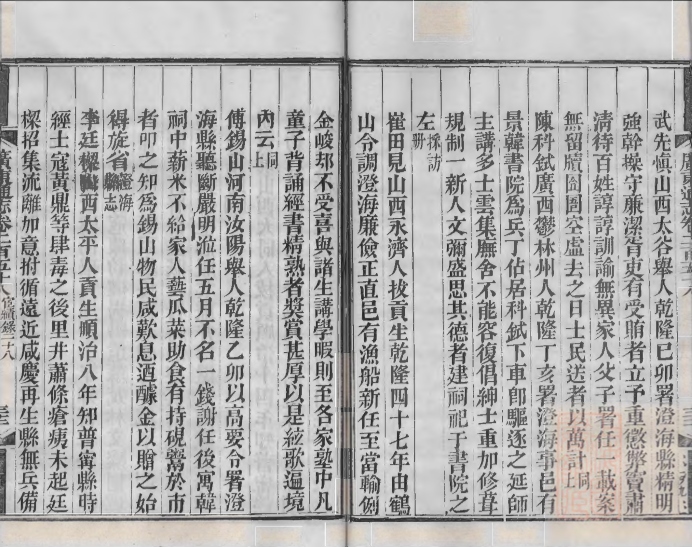 武先愼山西太谷舉人乾隆巳卯署澄海縣精明
強幹操守廉潔胥吏有受賄者立予重懲弊竇肅
清待百姓諄諄訓諭無異家人父子署任一載案
無留牘囹圄空虛去之日士民送者以萬計同上
陳科鋱廣西鬱林州人乾隆丁亥署澄海事邑有
景韓書院爲兵丁佔居科鋱下車卽驅逐之延師
主講多士雲集廡舍不能容復倡紳士重加修葺
規制一新人文彌盛思其德者建祠祀于書院之
左採訪册
崔田見山西永濟人拔貢生乾隆四十七年由鶴
山令調澄海廉儉正直邑有漁船新任至當輸例
金峻却不受喜與諸生講學暇則至各家塾中凡
童子背誦經書精熟者獎賞甚厚以是絃歌遍境
內云同上
傅錫山河南汝陽舉人乾隆乙卯以高要令署澄
海縣聽斷嚴明涖任五月不名一錢謝任後寓韓
祠中薪米不給家人藝瓜菜助食有持硯鬻於市
者叩之知爲錫山物民咸歎息酒醵金以贈之始
得旋省澄海縣志
李廷樑山西太平人貢生順治八年知普甯縣時
經土寇黃鼎等肆毒之後里井蕭條瘡痍未起廷
樑招集流離加意拊循遠近咸慶再生縣無兵備
廣東通志卷二百五十八 宦績錄二十八